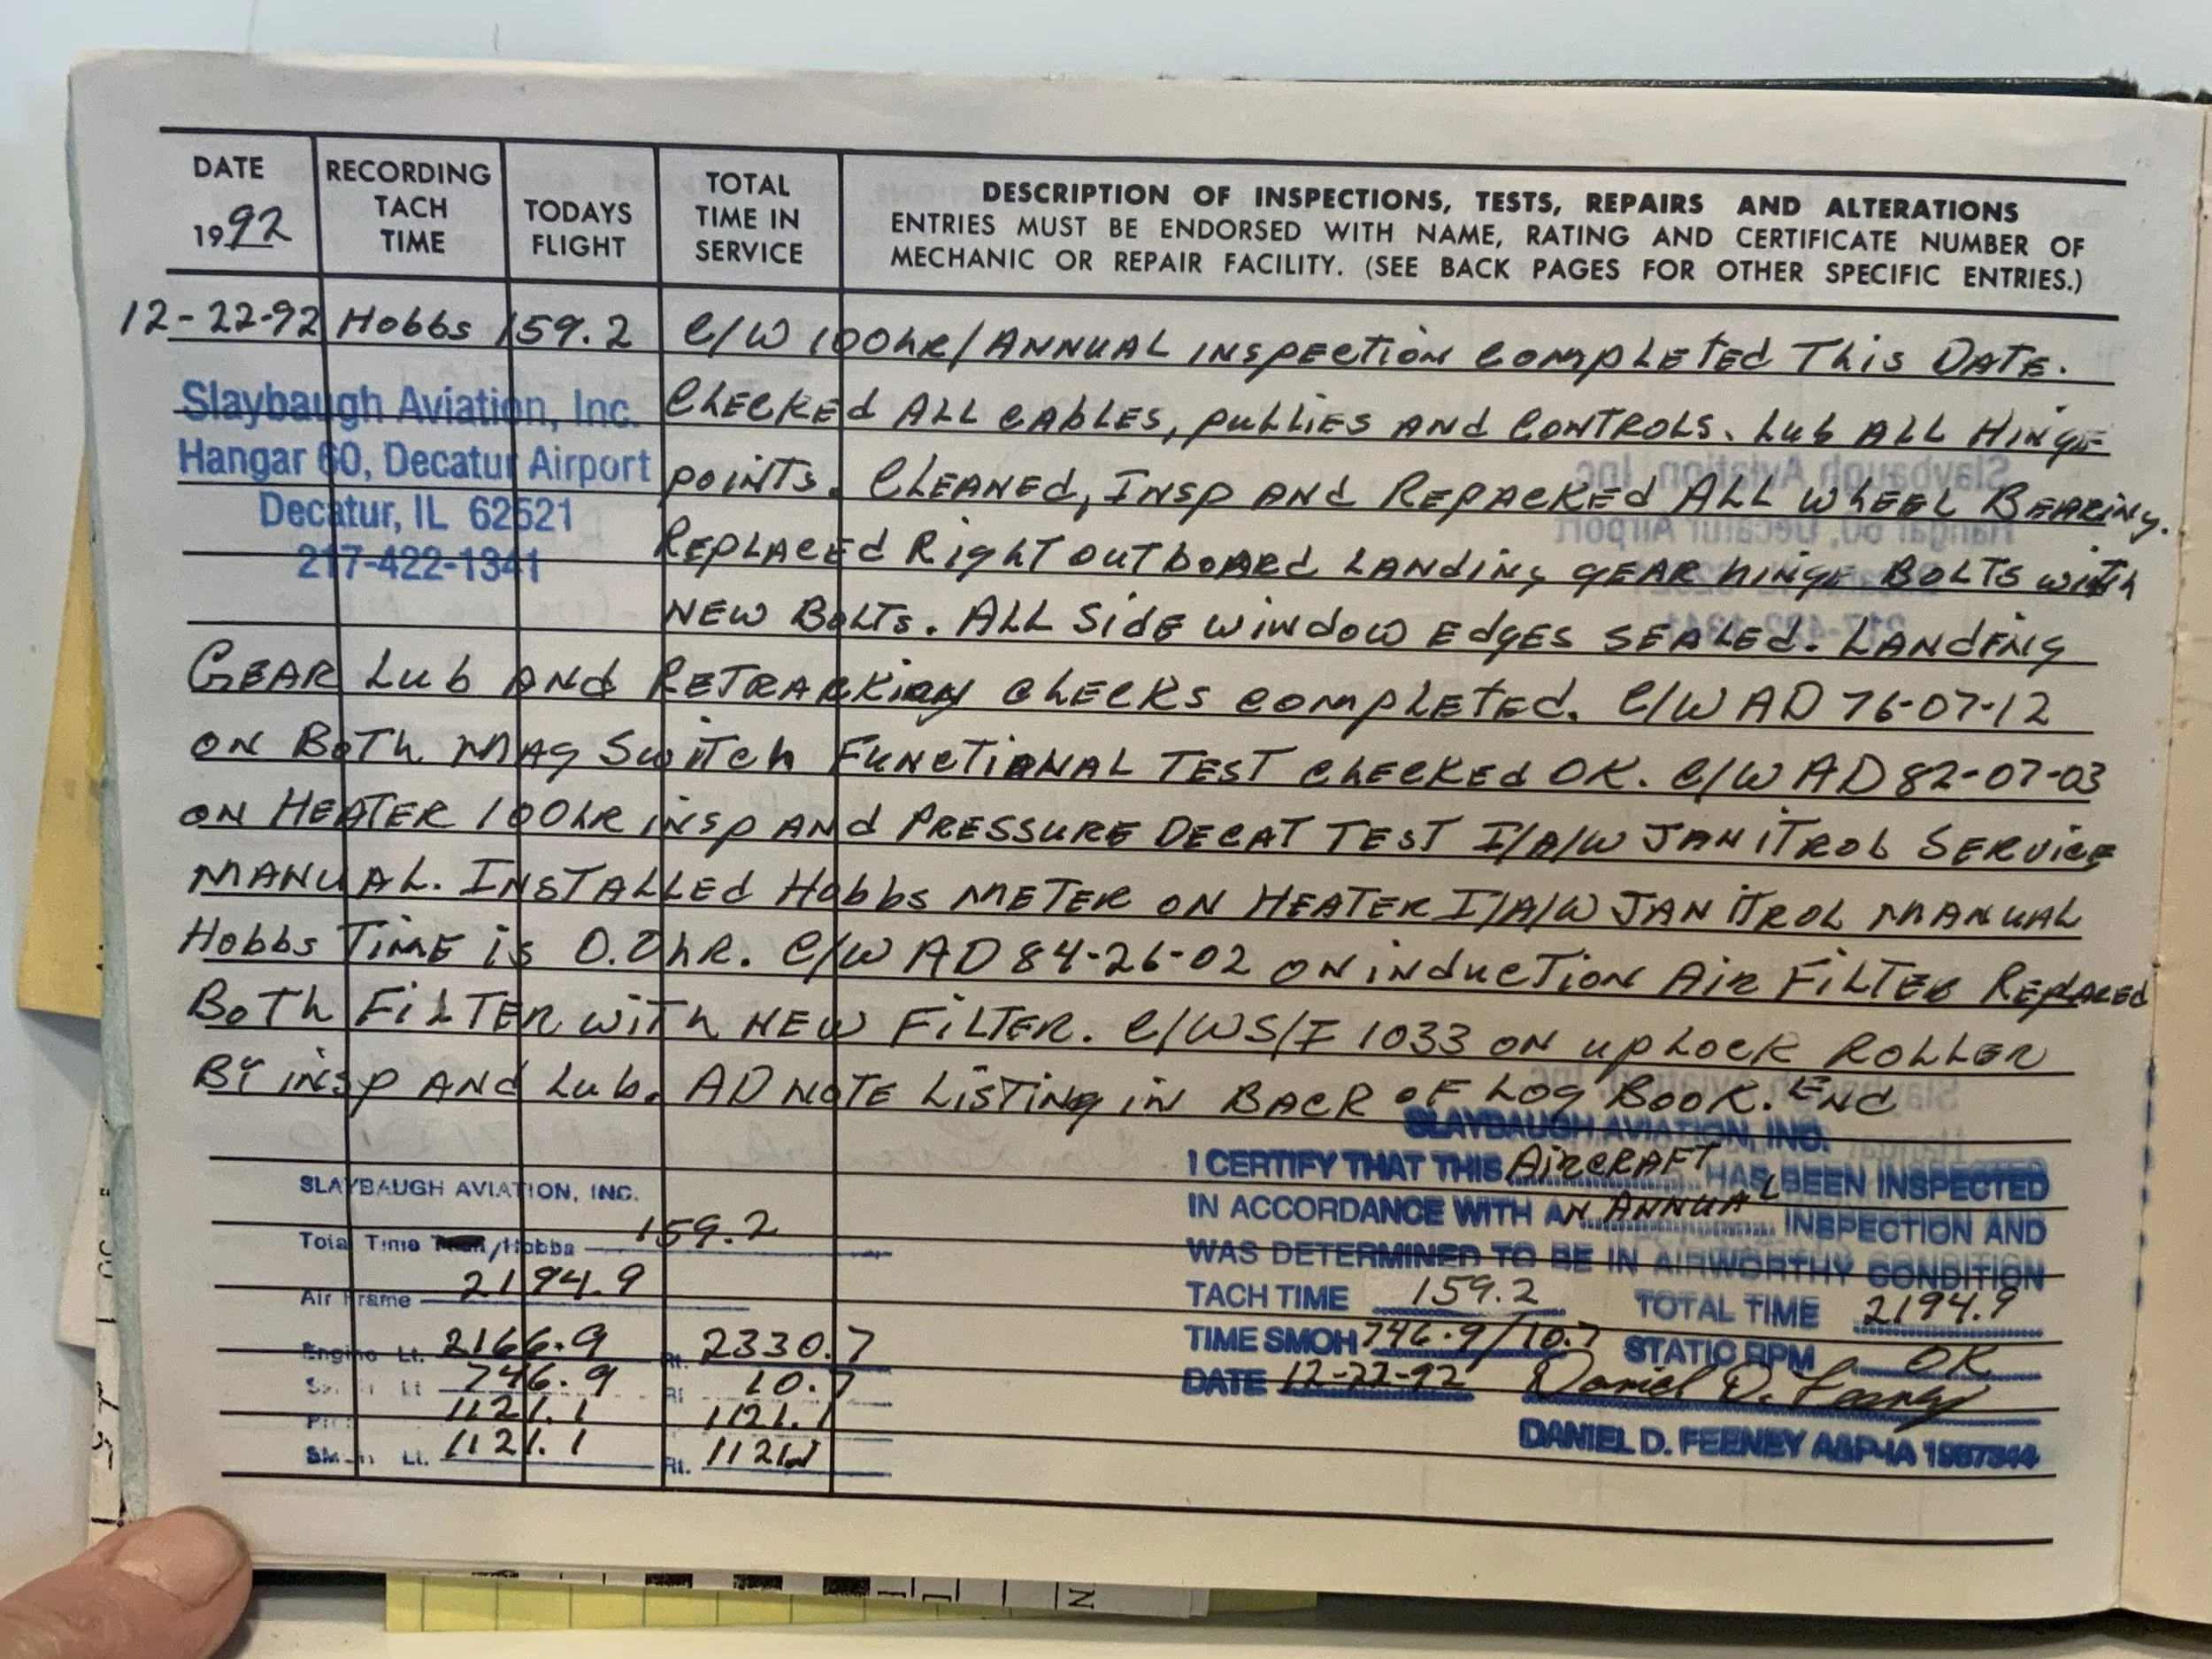 DATE
1992
RECORDING
TACH
TIME
TODAYS
FLIGHT
TOTAL
TIME IN
SERVICE
DESCRIPTION OF INSPECTIONS, TESTS, REPAIRS AND ALTERATIONS
ENTRIES MUST BE ENDORSED WITH NAME, RATING AND CERTIFICATE NUMBER OF
MECHANIC OR REPAIR FACILITY. (SEE BACK PAGES FOR OTHER SPECIFIC ENTRIES.)
12-22-92 Hobbs 159.2 C/W 100hr/ANNUAL inspection completed This DATE.
Slaybaugh Aviation, Inc.
Hangar 60, Decatur Airport
Decatur, IL 62521
217-422-1341
Checked ALL cables, pullies and controls. Lub ALL Hinge
points. Cleaned, Insp and Repacked ALL wheel Bearing.
Replaced Right outboard Landing gear hinge Bolts with
New Bolts. ALL Side window edges sealed. Landing
Gear Lub and checks completed. C/W AD 76-07-12
on Both Mag Switch Functional Test checked OK. C/W AD 82-07-03
on Heater 100hr insp and Pressure Decat Test I/A/W Janitrol Service
Manual. Installed Hobbs meter on Heater I/A/W Janitrol Manual
Hobbs Time is 0.0hr. C/W AD 84-26-02 on induction Air Filter Replaced
Both Filter with New Filter. C/W S/I 1033 on uplock Roller
By insp and Lub. AD Note Listing in Back of Log Book. End
SLAYBAUGH AVIATION, INC.
Total Time /Hobbs 159.2
Air Frame 2194.9
Engine Lt. 2166.9 Rt. 2330.7
Lt 746.9 Rt 10.7
1121.1 1121.1
Lt. 1121.1 Rt.
SLAYBAUGH AVIATION, INC.
I CERTIFY THAT THIS Aircraft HAS BEEN INSPECTED
IN ACCORDANCE WITH AN ANNUAL INSPECTION AND
WAS DETERMINED TO BE IN AIRWORTHY CONDITION
TACH TIME 159.2 TOTAL TIME 2194.9
TIME SMOH 746.9/10.7 STATIC RPM OK
DATE 12-22-92 Daniel D. Feeney
DANIEL D. FEENEY A&P-IA